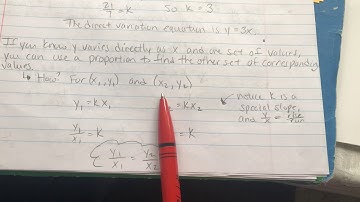 21/7 = K So K = 3
The direct variation equation is y = 3x.
If you know y varies directly as x and one set of values,
you can use a proportion to find the other set of corresponding
values.
↳ How? For (x₁, y₁) and (x₂, y₂)
y₁ = Kx₁ = Kx₂
y₁/x₁ = K = K
y₁/x₁ = y₂/x₂
notice K is a
special slope,
and y/x = rise/run